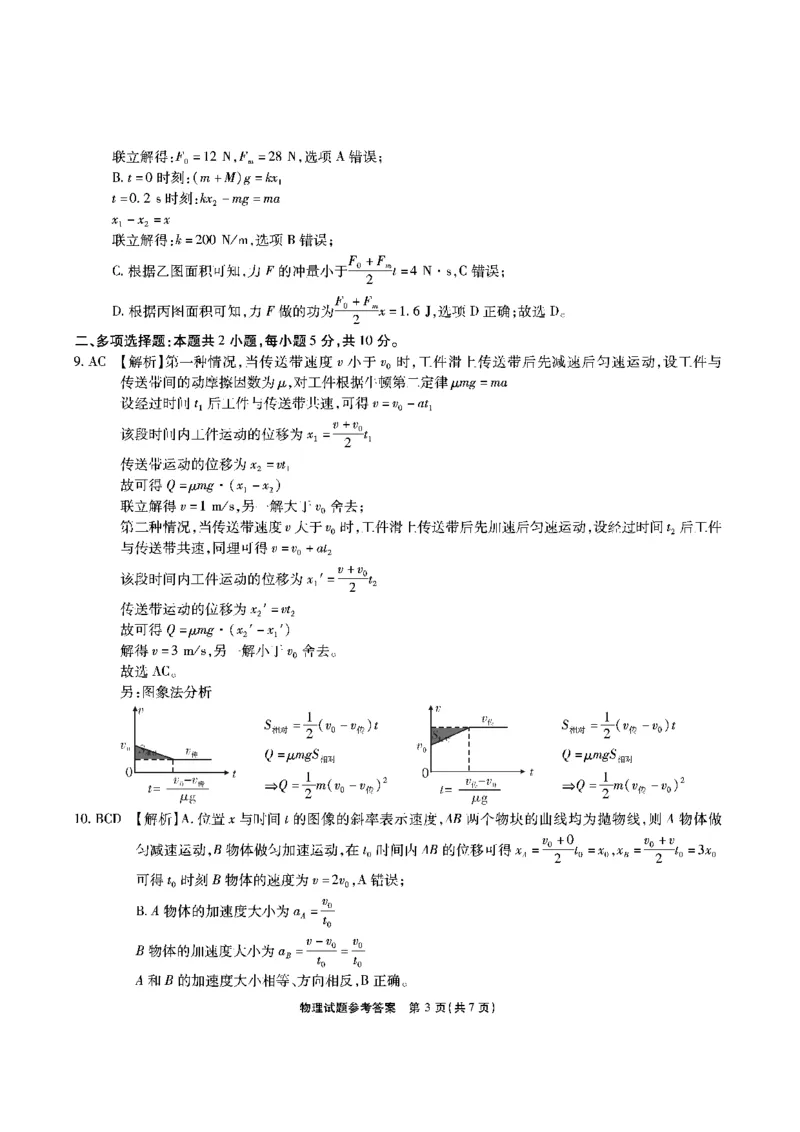 联立解得:F₀=12 N,Fₘ=28 N,选项 A 错误;
B. t=0 时刻:(m+M)g=kx₁
t=0.2 s 时刻:kx₂-mg=ma
x₁-x₂=x
联立解得:k=200 N/m,选项 B 错误;
C. 根据乙图面积可知,力 F 的冲量小于(F₀+Fₘ)/2 t=4 N·s,C 错误;
D. 根据丙图面积可知,力 F 做的功为(F₀+Fₘ)/2 x=1.6 J,选项 D 正确;故选 D。
二、多项选择题:本题共 2 小题,每小题 5 分,共 10 分。
9. AC 【解析】第一种情况,当传送带速度 v 小于 v₀ 时,工件滑上传送带后先减速后匀速运动,设工件与
传送带间的动摩擦因数为 μ,对工件根据牛顿第二定律 μmg=ma
设经过时间 t₁ 后工件与传送带共速,可得 v=v₀-at₁
该段时间内工件运动的位移为 x₁=(v+v₀)/2 t₁
传送带运动的位移为 x₂=vt₁
故可得 Q=μmg·(x₁-x₂)
联立解得 v=1 m/s,另一解大于 v₀ 舍去;
第二种情况,当传送带速度 v 大于 v₀ 时,工件滑上传送带后先加速后匀速运动,设经过时间 t₂ 后工件
与传送带共速,同理可得 v=v₀+at₂
该段时间内工件运动的位移为 x₁′=(v+v₀)/2 t₂
传送带运动的位移为 x₂′=vt₂
故可得 Q=μmg·(x₂′-x₁′)
解得 v=3 m/s,另一解小于 v₀ 舍去。
故选 AC。
另:图象法分析
v
v₀
v传
0
t
t=(v₀-v传)/μg
S相对=1/2(v₀-v传)t
Q=μmgS相对
⇒Q=1/2 m(v₀-v传)²
v
v传
v₀
0
t
t=(v传-v₀)/μg
S相对=1/2(v传-v₀)t
Q=μmgS相对
⇒Q=1/2 m(v传-v₀)²
10. BCD 【解析】A. 位置 x 与时间 t 的图像的斜率表示速度,AB 两个物块的曲线均为抛物线,则 A 物体做
匀减速运动,B 物体做匀加速运动,在 t₀ 时间内 AB 的位移可得 x_A=(v₀+0)/2 t₀=x₀,x_B=(v₀+v)/2 t₀=3x₀
可得 t₀ 时刻 B 物体的速度为 v=2v₀,A 错误;
B. A 物体的加速度大小为 a_A=v₀/t₀
B 物体的加速度大小为 a_B=(v-v₀)/t₀=v₀/t₀
A 和 B 的加速度大小相等、方向相反,B 正确。
物理试题参考答案 第 3 页(共 7 页)